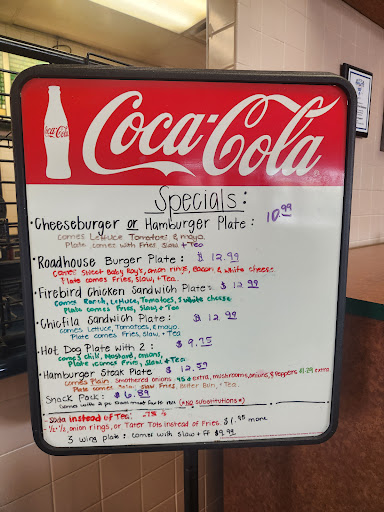 Coca-Cola
Coca-Cola
Specials:
• Cheeseburger or Hamburger Plate: 10.99
comes Lettuce Tomatoes & mayo.
Plate comes with Fries Slaw + Tea
• Roadhouse Burger Plate: $ 12.99
comes Sweet Baby Ray's, onion rings, bacon & white cheese
Plate comes Fries, Slaw, + Tea.
• Firebird Chicken Sandwich Plate: $ 12.99
comes Ranch, Lettuce, Tomatoes, & white cheese
Plate comes Fries, Slaw, + Tea
• Chicfila Sandwich Plate: $ 12.99
comes Lettuce, Tomatoes, & mayo.
Plate comes Fries, Slaw, + Tea.
• Hot Dog Plate with 2: $ 9.75
comes chili, mustard, onions,
Plate comes Fries, Slaw, + Tea
• Hamburger Steak Plate $ 12.59
comes Plain. Smothered onions extra, mushrooms, onions, & Peppers $1.79 extra
Plate comes Slaw, Fries, + Tea.
Snack Pack: $ 6.89
comes with 2 pc (NO substitutions)
Soda instead of Tea:
onion rings, or Tater Tots instead of Fries. $1.95 more
3 wing plate: comes with Slaw + FF $9.99